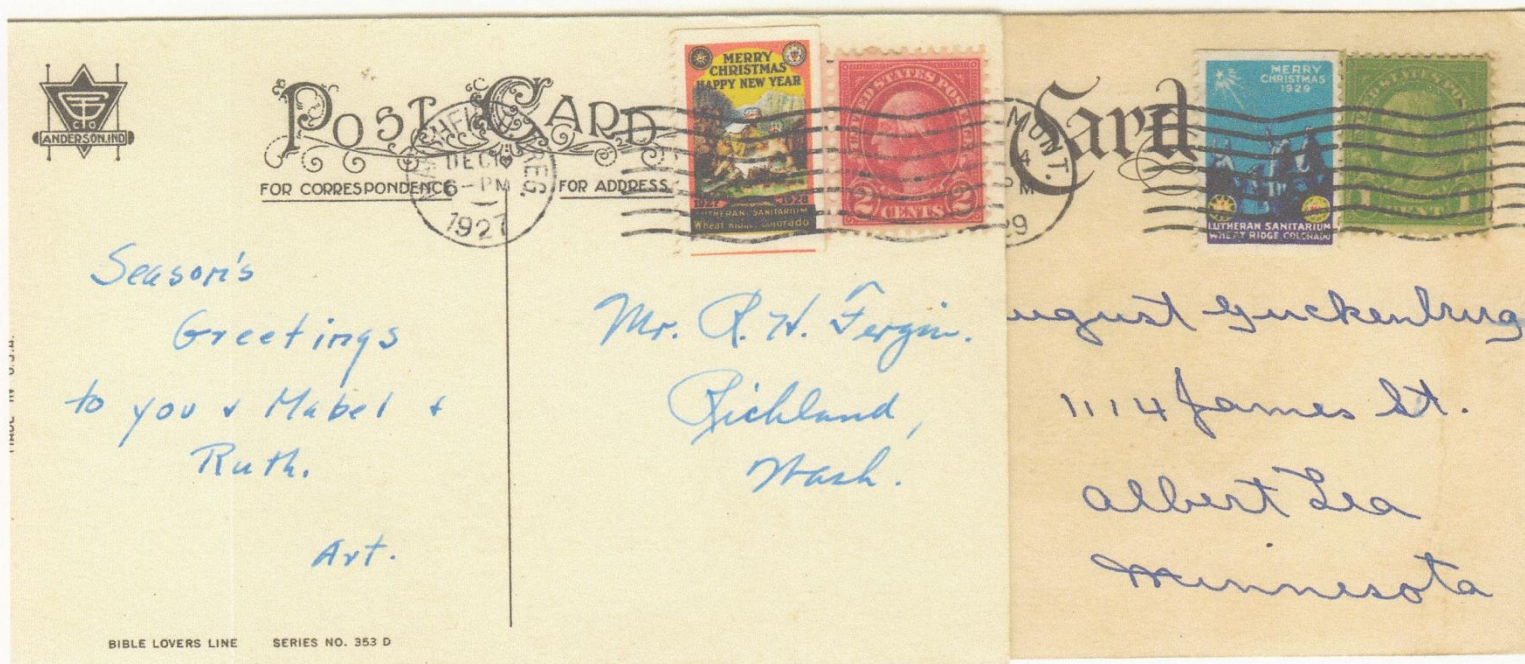 ANDERSON, IND
POST CARD
FOR CORRESPONDENCE
FOR ADDRESS
DEC
6-PM
1927
MERRY
CHRISTMAS
HAPPY NEW YEAR
1927 1928
LUTHERAN SANITARIUM
Wheat Ridge, Colorado
UNITED STATES POSTAGE
2 CENTS 2
Season's
Greetings
to you & Mabel &
Ruth.
Art.
Mr. R. H. Fergin.
Richland,
Wash.
MADE IN U.S.A.
BIBLE LOVERS LINE SERIES NO. 353 D
Card
MONT.
4
PM
29
MERRY
CHRISTMAS
1929
LUTHERAN SANITARIUM
WHEAT RIDGE, COLORADO
1 CENT 1
ugust Guckenburg
1114 James St.
Albert Lea
Minnesota